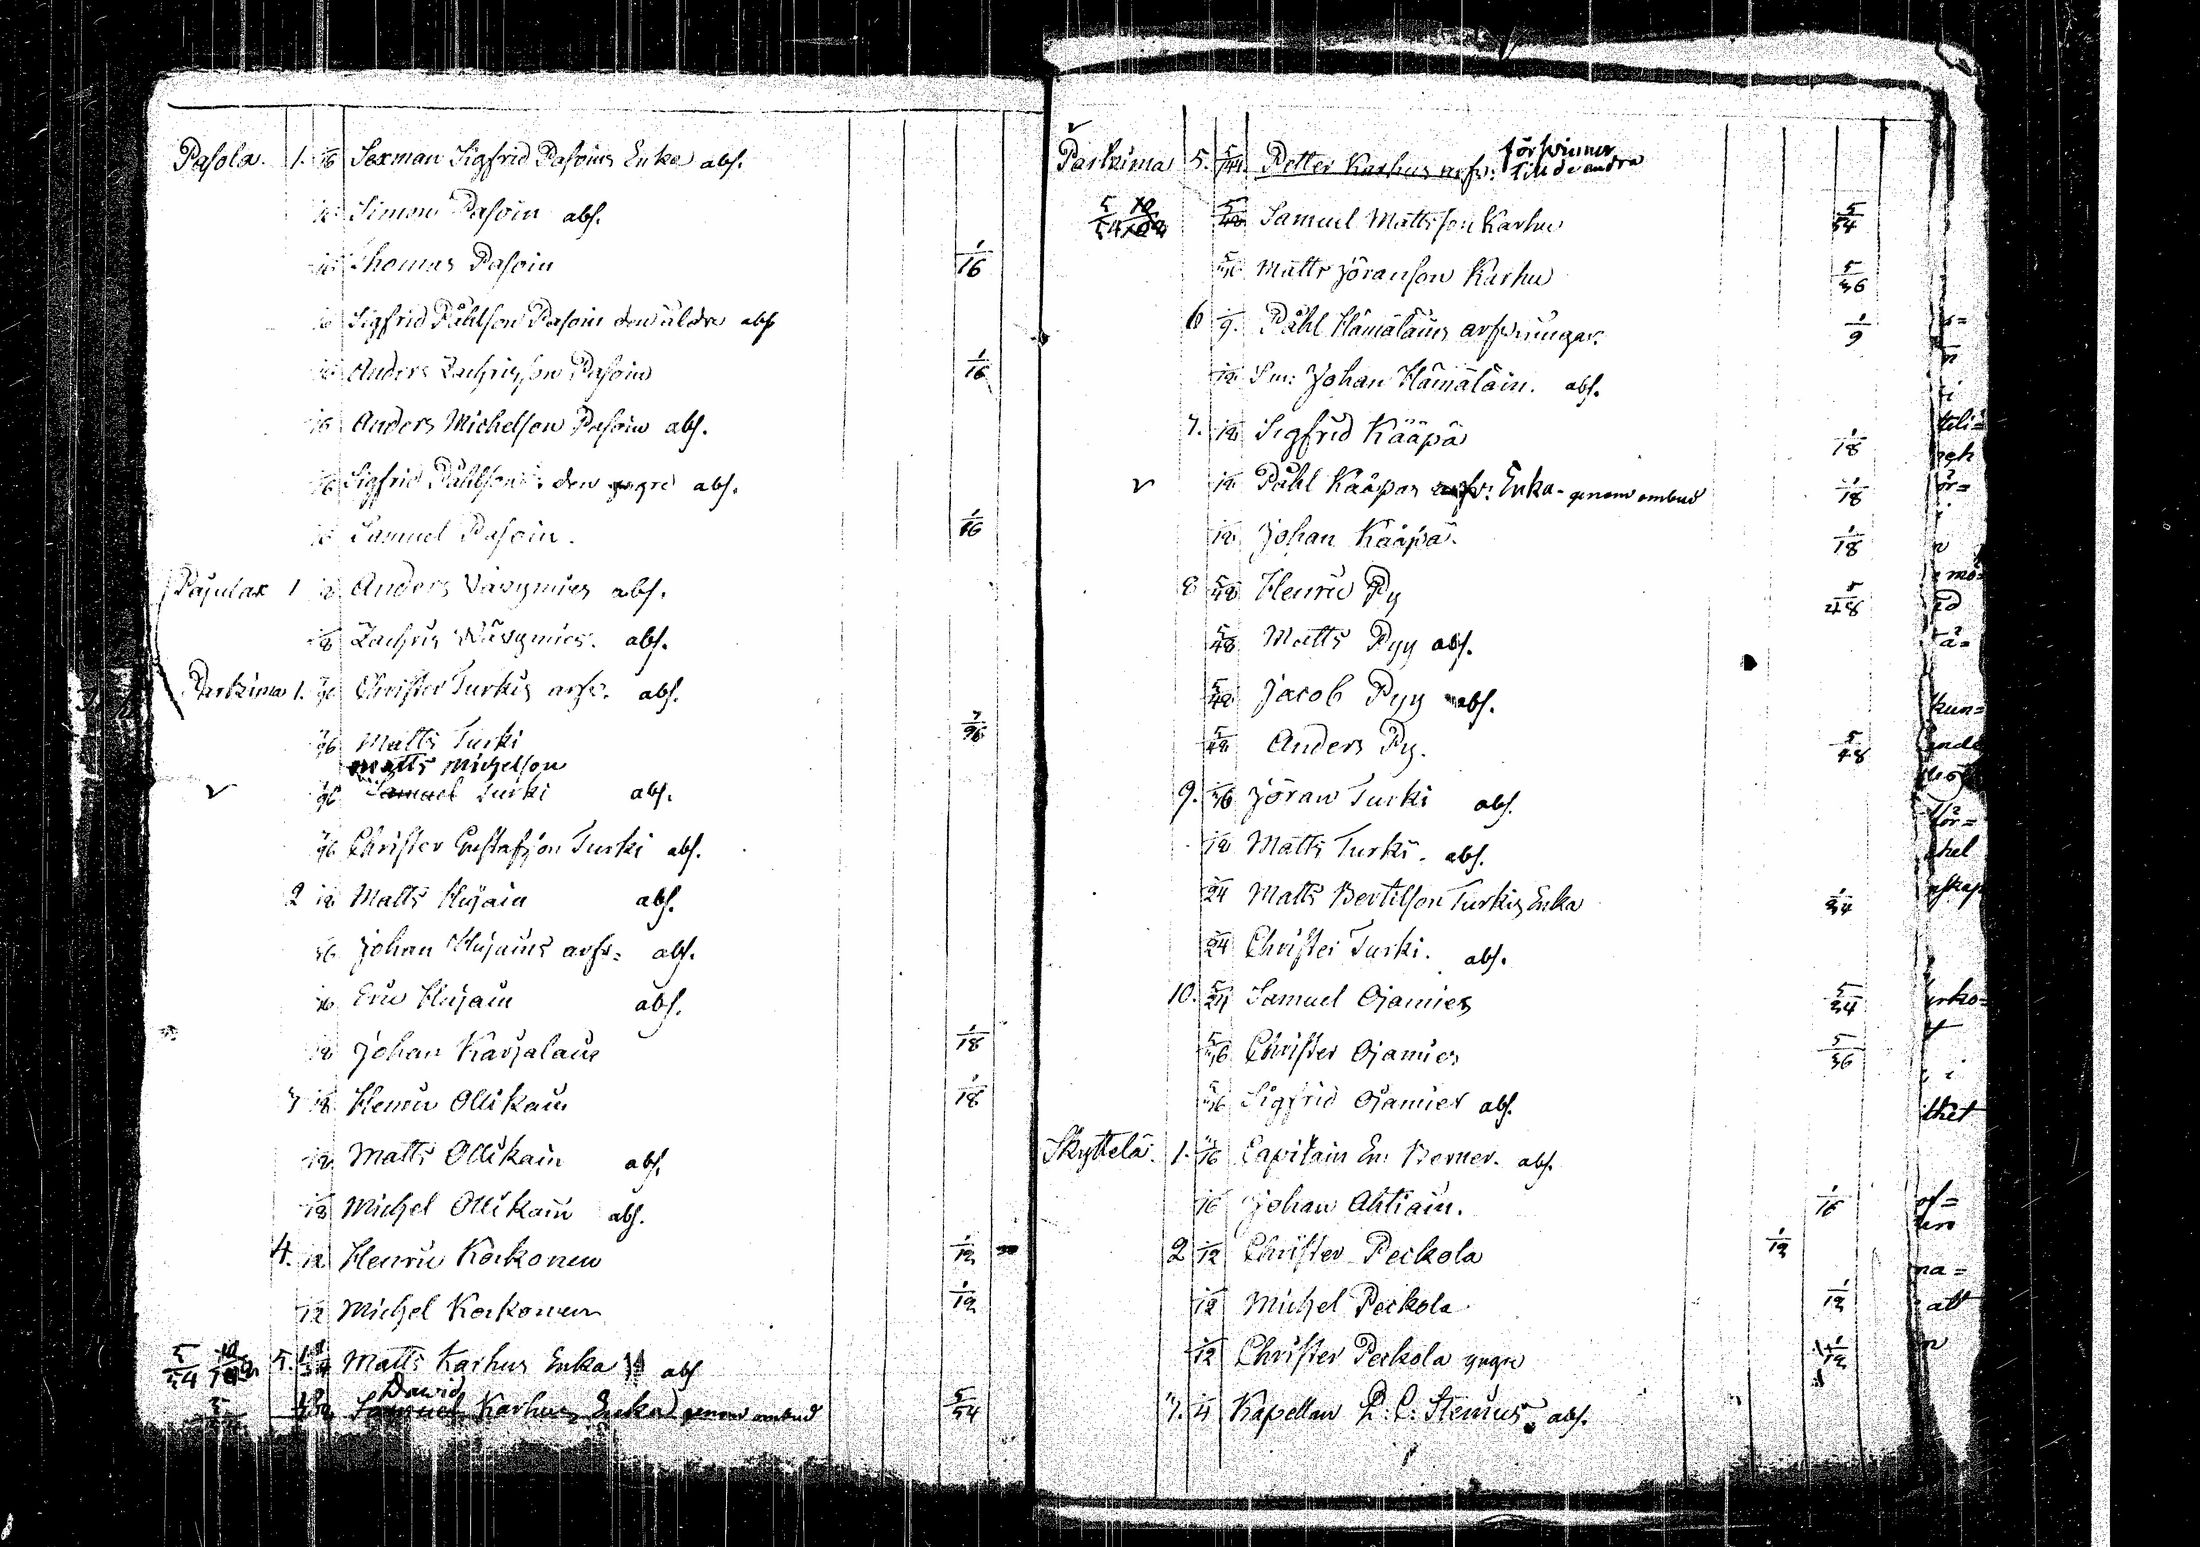 Pasola. 1. 1/16 Sexman Sigfrid Pasoins Enka abs.
1/16 Simon Pasoin abs.
1/16 Thomas Pasoin 1/16
1/16 Sigfrid Påhlson Pasoin den äldre abs
1/16 Anders Zachrisson Pasoin 1/16
1/16 Anders Michelson Pasoin abs.
1/16 Sigfrid Påhlson den yngre abs.
1/16 Samuel Pasoin. 1/16
Pajulax 1 1/8 Anders Väsymies abs.
1/8 Zachris Wäsymies. abs.
Parkzima 1. 7/96 Christer Turkis arfv. abs.
7/96 Matts Turki 7/96
Matts Michelson
7/96 Samuel Turki abs.
7/96 Christer Gustafson Turki abs.
2 1/18 Matts Hujain abs.
1/36 Johan Hujains arfv: abs.
1/36 Eric Hujain abs.
1/18 Johan Karjalain 1/18
3 1/18 Henric Ollikain 1/18
1/18 Matts Ollikain abs.
1/18 Michel Ollikain abs.
4. 1/12 Henric Korkonen 1/12
1/12 Michel Korkonen 1/12
5/54 5. Matts Karhus Enka abs
Dawid
Samuel Karhus Enka genom ombud 5/54
Parkzima 5. 5/144 Petter Karhus arfv: försvinner
till de andra
5/54 Samuel Mattsson Karhu 5/54
5/36 Matts Jöranson Karhu 5/36
6 1/9. Påhl Hämäläins arfvingar. 1/9
1/18 Sm: Johan Hämäläin. abs.
7. 1/18 Sigfrid Kääpä 1/18
1/18 Påhl Kääpas arfv: Enka genom ombud 1/18
1/18 Johan Kääpä. 1/18
8 5/48 Henric Py 5/48
5/48 Matts Pyy abs.
5/48 Jacob Pyy abs.
5/48 Anders Py. 5/48
9. 1/36 Jöran Turki abs.
1/18 Matts Turki. abs.
1/24 Matts Bertilson Turkis Enka 1/24
1/24 Christer Turki. abs.
10. 5/24 Samuel Ojamies 5/24
5/36 Christer Ojamies 5/36
5/36 Sigfrid Ojamies abs.
Skyttelä. 1. Capitain Em Berner. abs.
1/16 Johan Ahtiain. 1/16
2 1/12 Christer Peckola 1/12
1/12 Michel Peckola 1/12
1/12 Christer Peckola yngre 1/12
1/4 Kapellan P: C: Stenius abs.